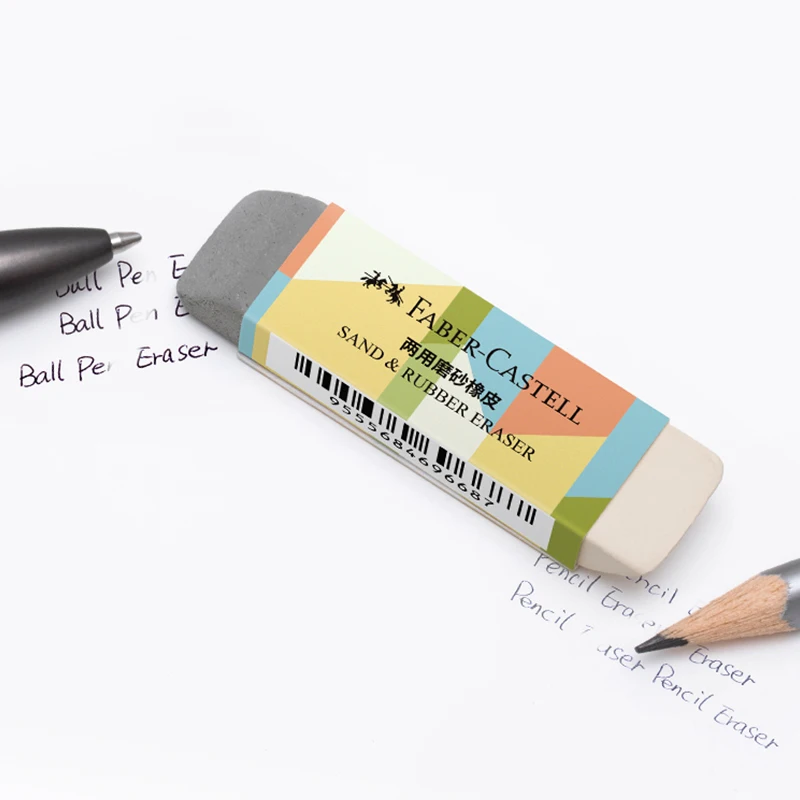 Ball Pen E
Ball Pen E
Ball Pen Eraser
FABER-CASTELL
两用磨砂橡皮
SAND & RUBBER ERASER
9555684696687
Pencil
Pencil Era Eraser
Pencil aser Pencil Eraser